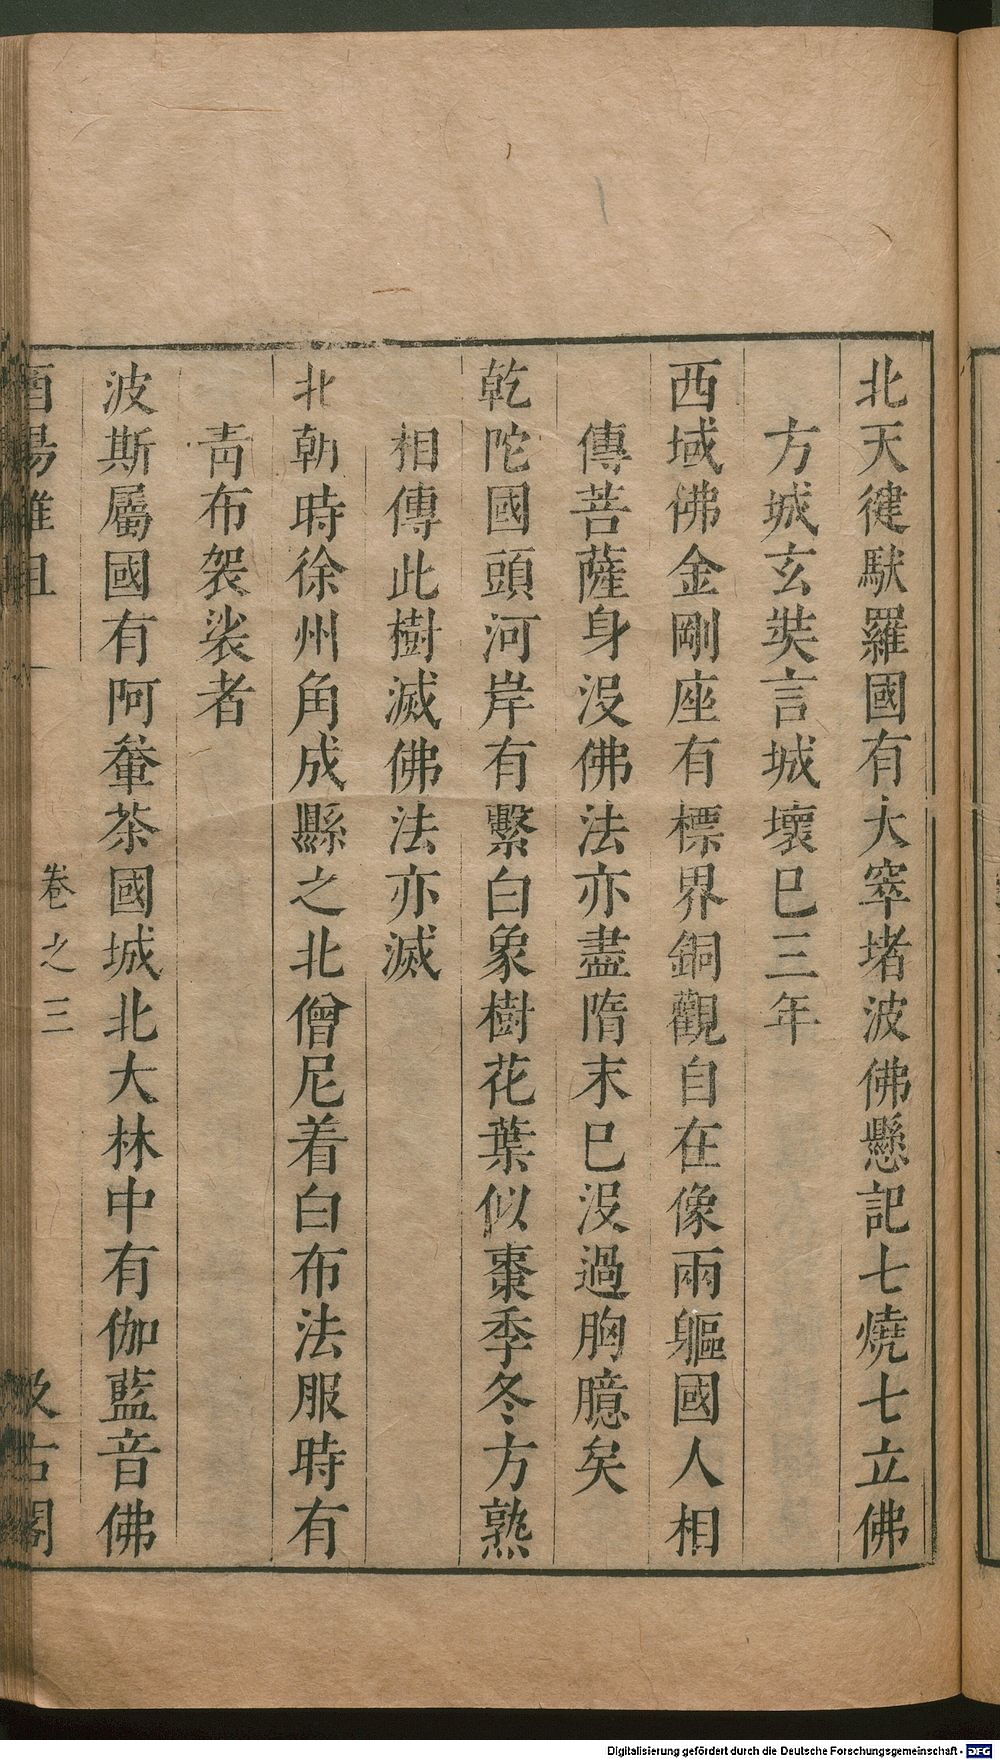 北天健馱羅國有大窣堵波佛懸記七燒七立佛
方城玄奘言城壞巳三年
西域佛金剛座有標界銅觀自在像兩軀國人相
傳菩薩身没佛法亦盡隋末巳没過胸臆矣
乾陀國頭河岸有繫白象樹花葉似棗季冬方熟
相傳此樹滅佛法亦滅
北朝時徐州角成縣之北僧尼着白布法服時有
青布袈裟者
波斯屬國有阿輋茶國城北大林中有伽藍音佛
酉陽雜俎 卷之三 汲古閣
Digitalisierung gefördert durch die Deutsche Forschungsgemeinschaft - DFG